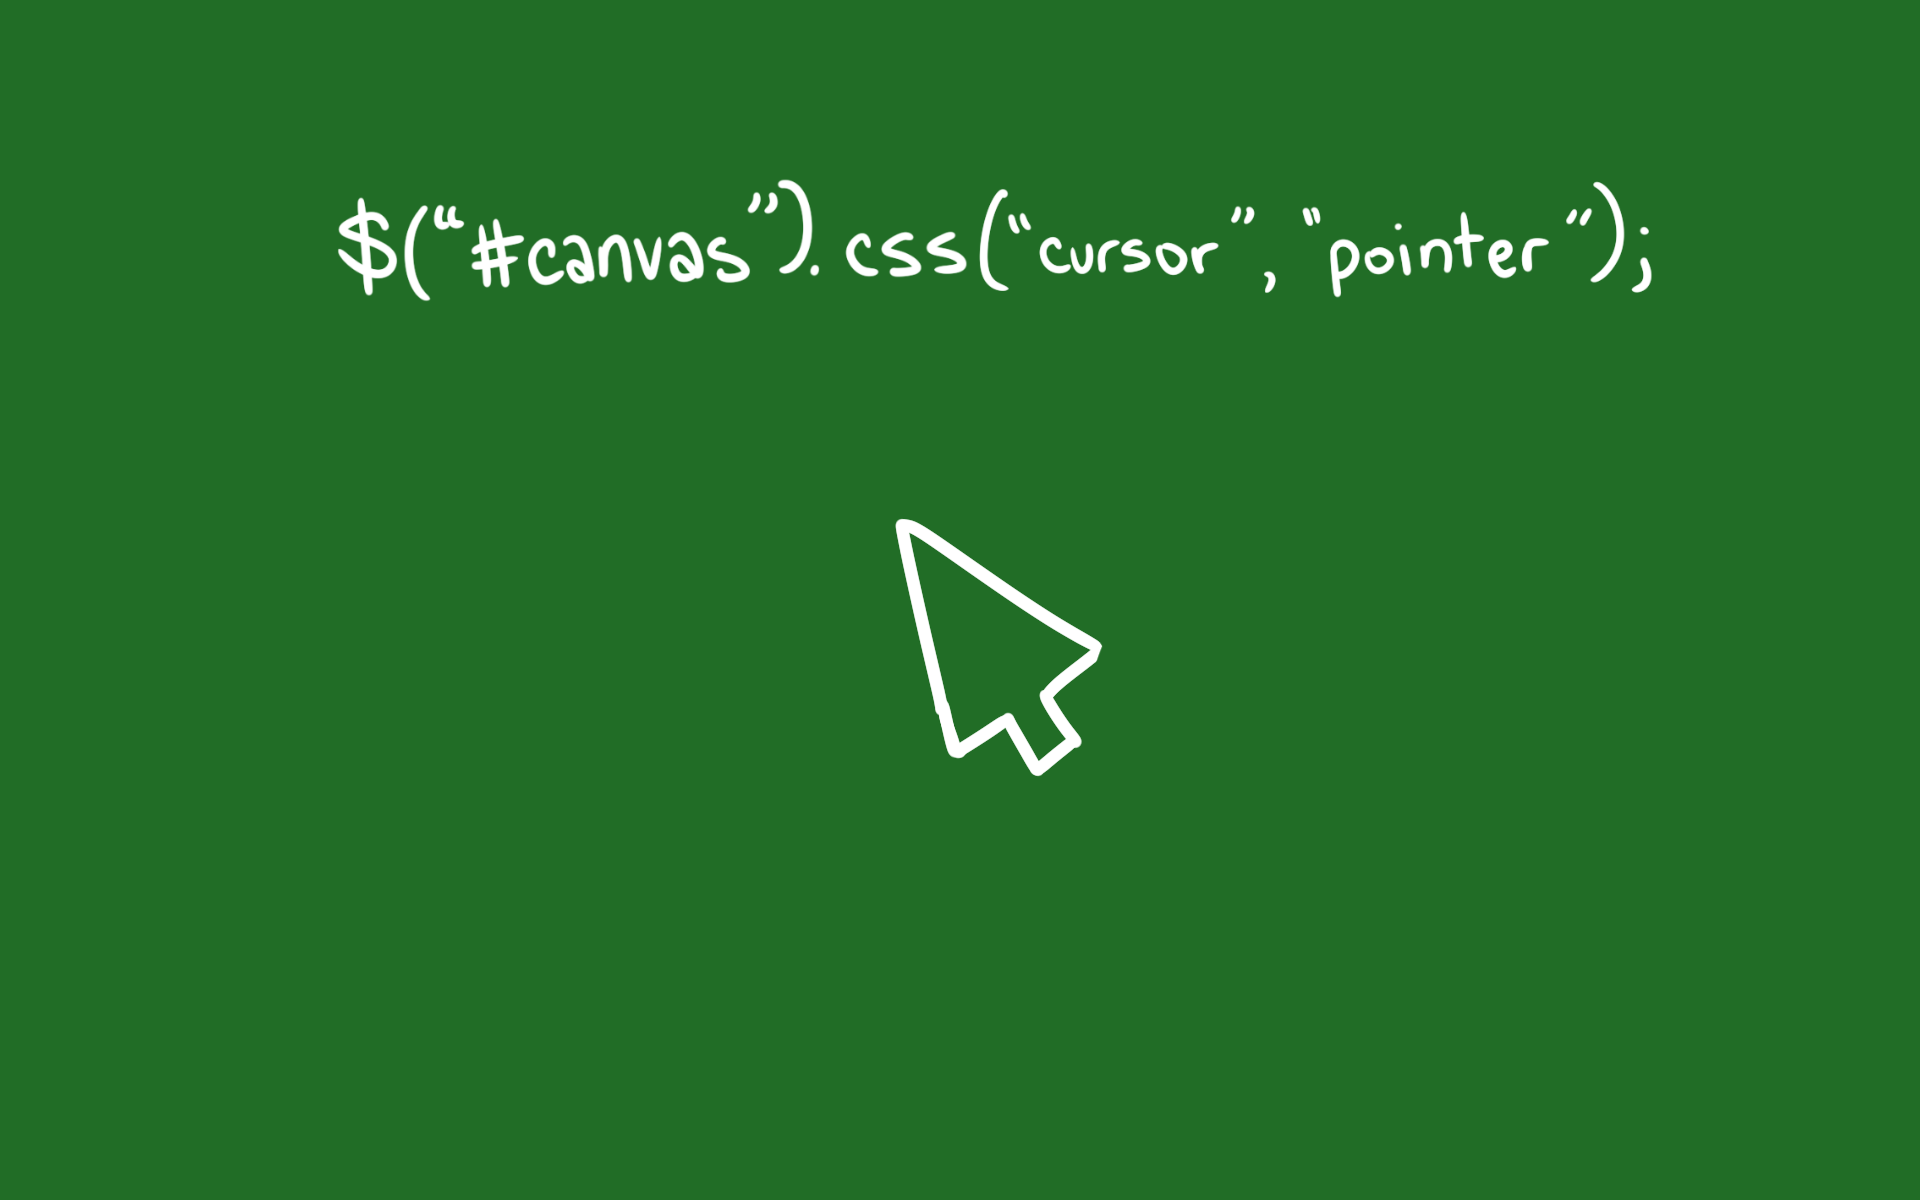 $(“#canvas”).css(“cursor”, “pointer”);